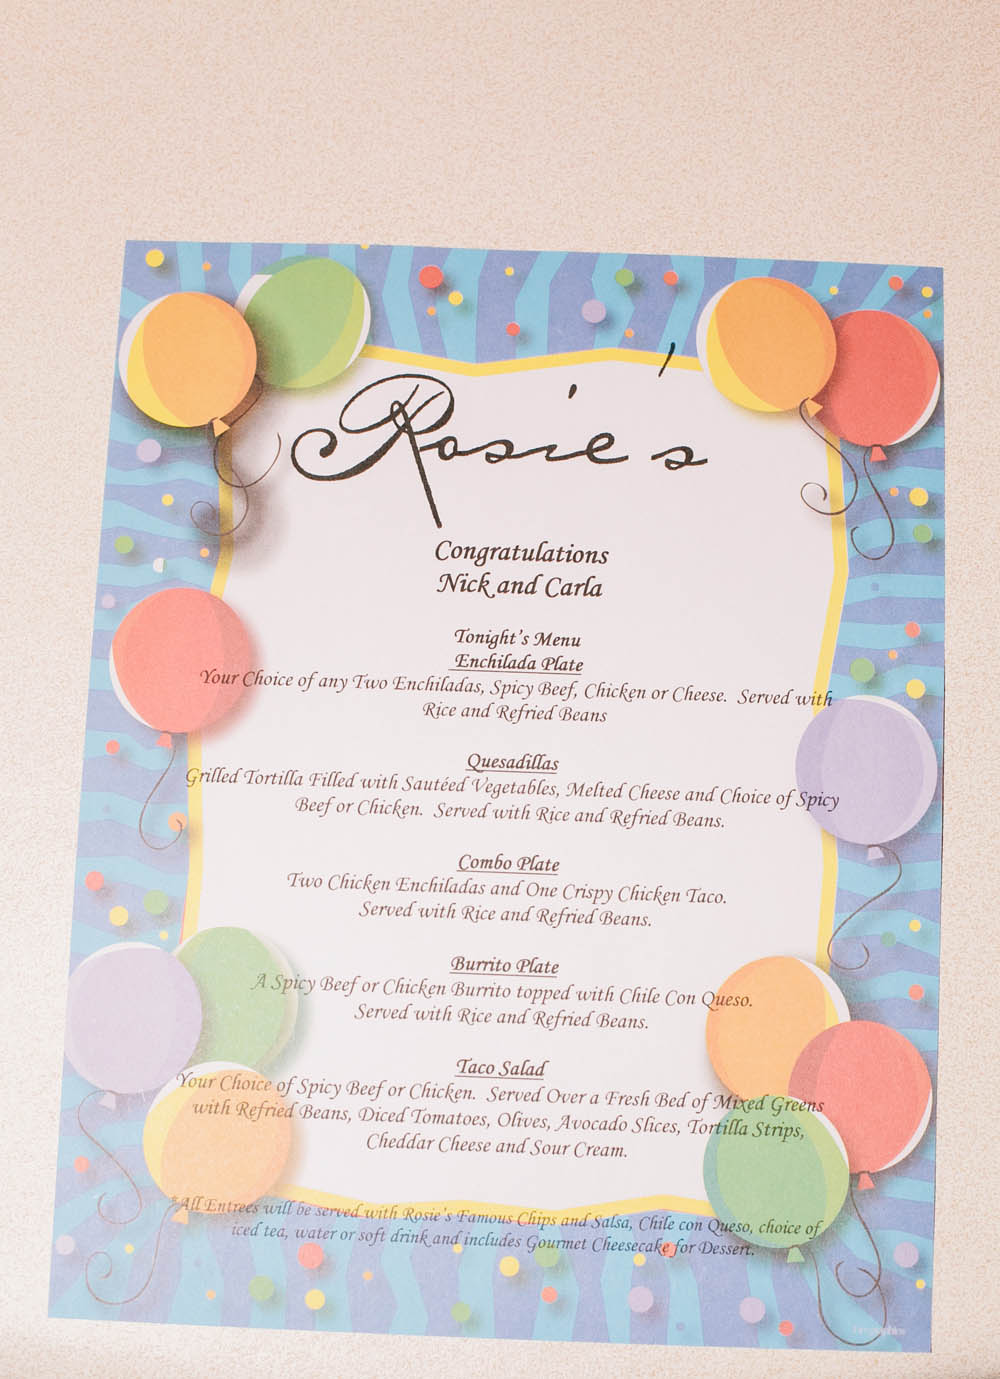 Rosie's
Congratulations
Nick and Carla
Tonight's Menu
Enchilada Plate
Your Choice of any Two Enchiladas, Spicy Beef, Chicken or Cheese. Served with
Rice and Refried Beans
Quesadillas
Grilled Tortilla Filled with Sautéed Vegetables, Melted Cheese and Choice of Spicy
Beef or Chicken. Served with Rice and Refried Beans.
Combo Plate
Two Chicken Enchiladas and One Crispy Chicken Taco.
Served with Rice and Refried Beans.
Burrito Plate
A Spicy Beef or Chicken Burrito topped with Chile Con Queso.
Served with Rice and Refried Beans.
Taco Salad
Your Choice of Spicy Beef or Chicken. Served Over a Fresh Bed of Mixed Greens
with Refried Beans, Diced Tomatoes, Olives, Avocado Slices, Tortilla Strips,
Cheddar Cheese and Sour Cream.
*All Entrees will be served with Rosie's Famous Chips and Salsa, Chile con Queso, choice of
iced tea, water or soft drink and includes Gourmet Cheesecake for Dessert.